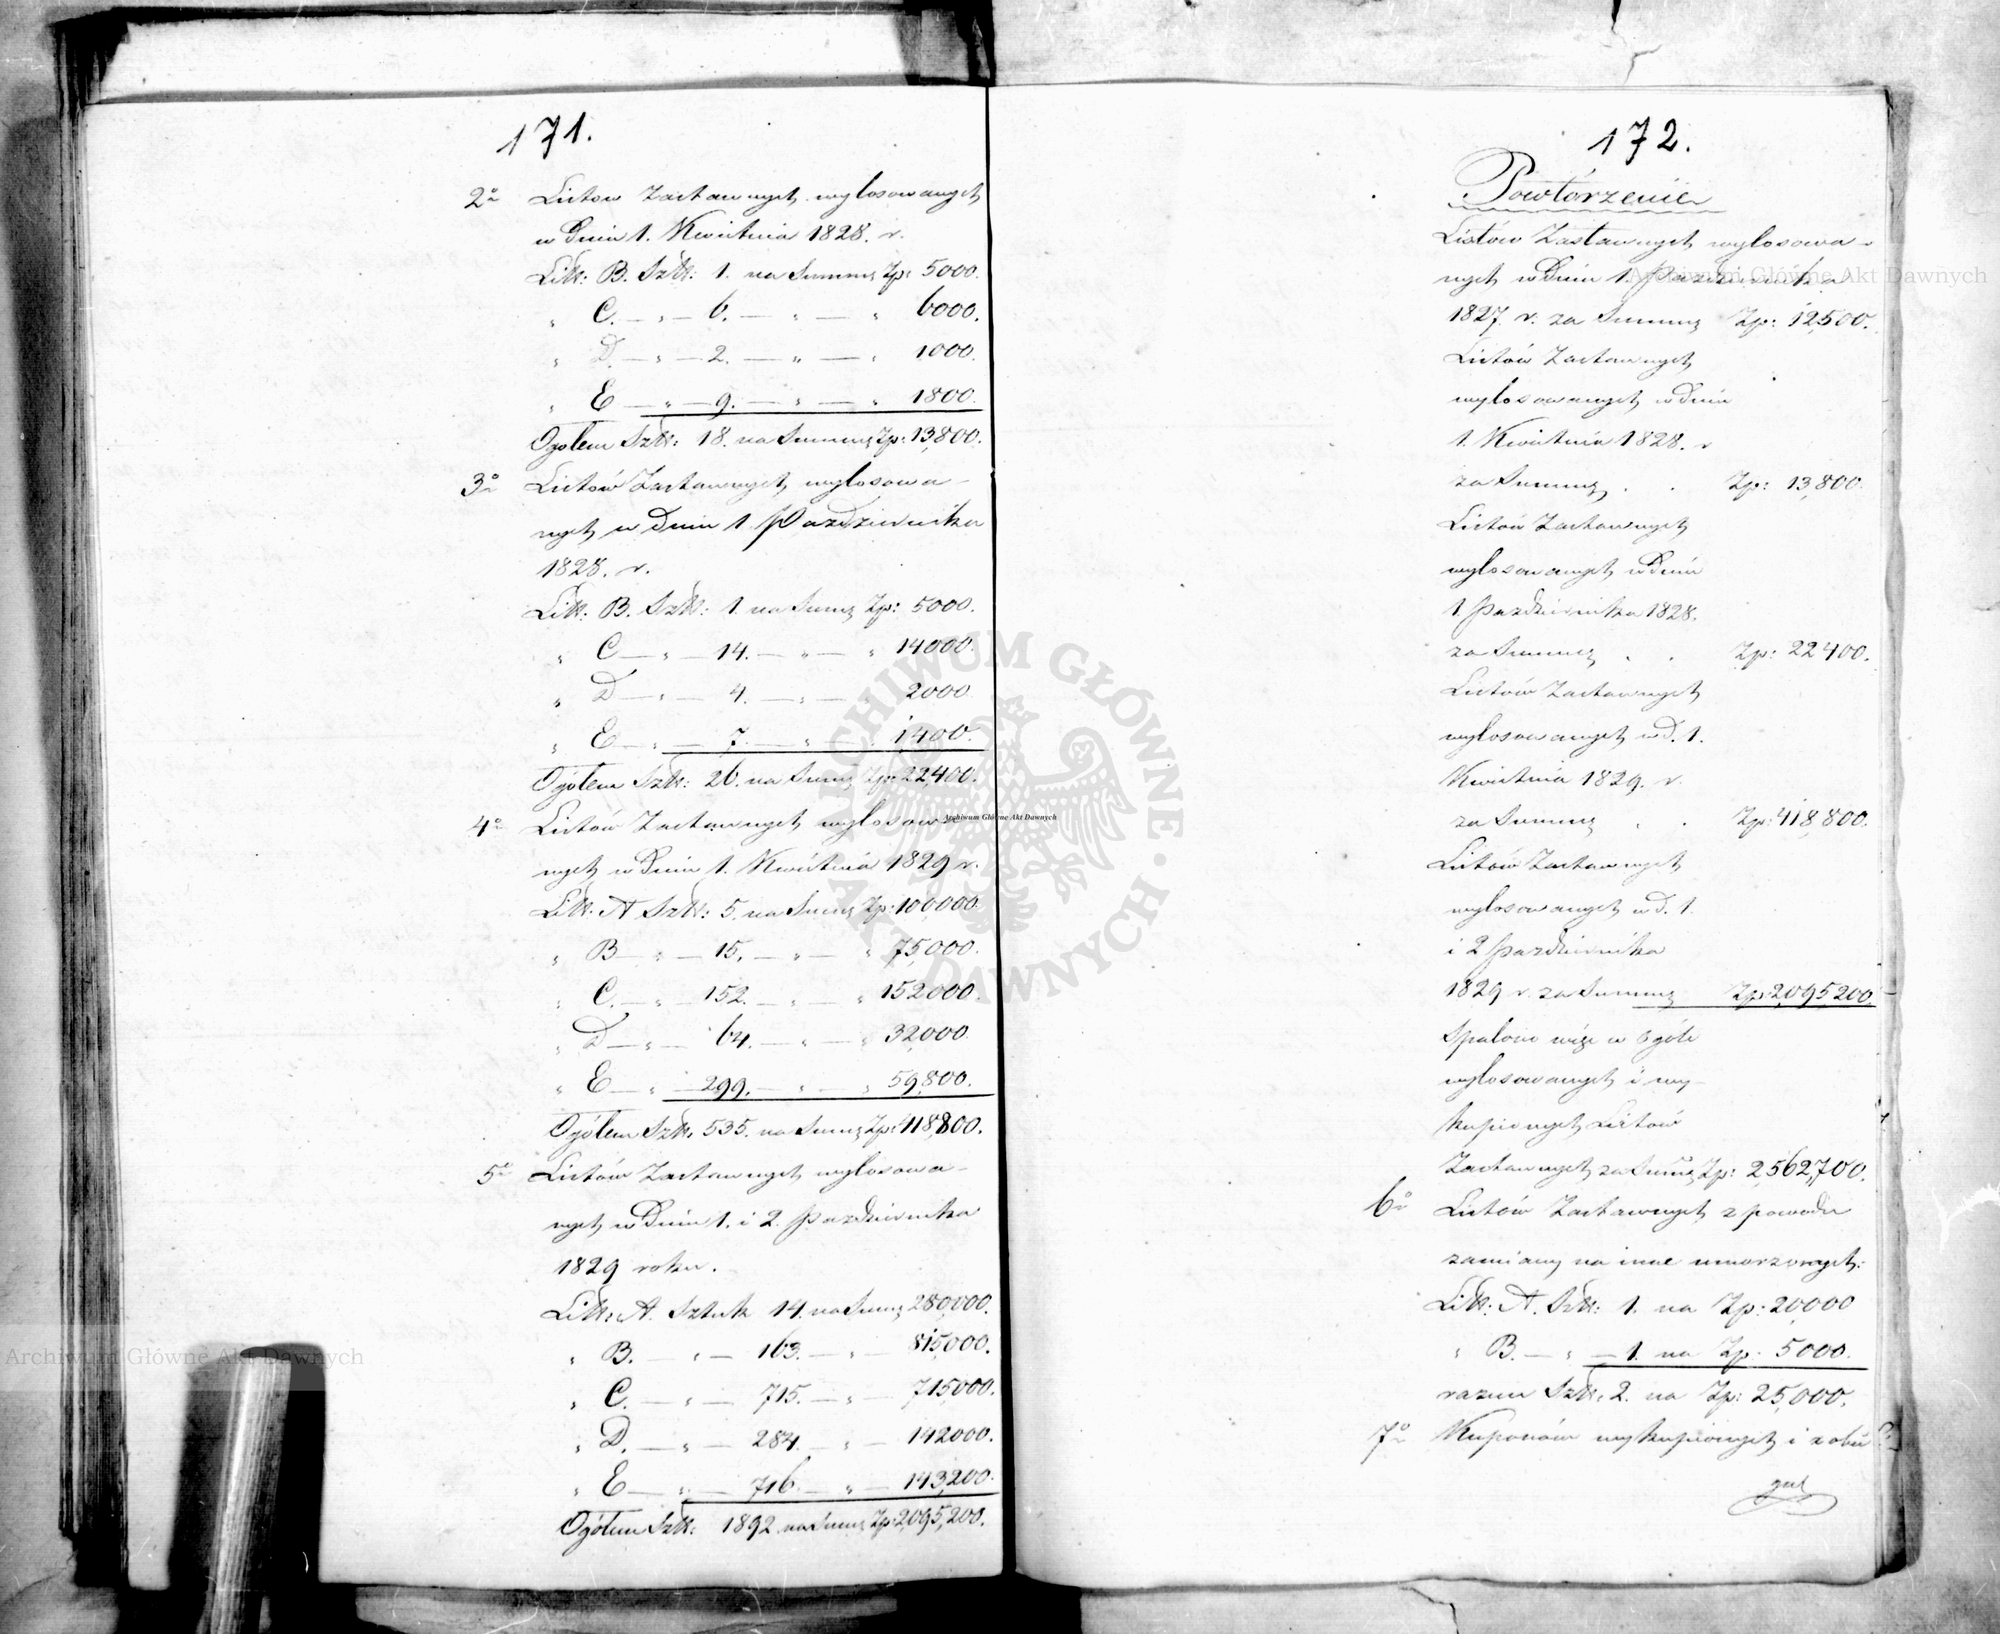 171.
2o Listów Zastawnych wylosowanych
w Dniu 1. Kwietnia 1828. r.
Litt: B. Sztk: 1. na Summę Zp: 5000.
" C. — " — 6. — " — " 6000.
" D. — " — 2. — " — " 1000.
" E — " — 9. — " — " 1800.
Ogołem Sztk: 18. na Summę Zp: 13,800.
3o Listów Zastawnych wylosowa-
nych w Dniu 1 Pazdziernika
1828. r.
Litt: B. Sztk: 1. na Summę Zp: 5000.
" C — " — 14. — " — " 14000.
" D — " — 4. — " — " 2000
" E — " — 7. — " — " 1400.
Ogółem Sztk: 26. na Summę Zp: 22,400.
4o Listów Zastawnych wylosowa-
nych w Dniu 1. Kwietnia 1829 r.
Litt: A Sztk: 5. na Summę Zp: 100,000.
" B — " — 15. — " — " 75,000.
" C. — " — 152. — " — " 152000.
" D — " — 64. — " — " 32,000.
" E — " — 299. — " — " 59,800.
Ogółem Sztk. 535. na Summę Zp: 418,800.
5o Listów Zastawnych wylosowa-
nych w Dniu 1. i 2. Pazdziernika
1829 roku.
Litt: A. Sztuk 14. na Summę 280,000.
" B. — " — 163. — " — 815,000.
" C. — " — 715. — " — 715,000.
" D. — " — 284. " — 142000.
" E — " — 716. — " — 143,200.
Ogółem Sztk: 1892. na Summę Zp: 2,095,200.
172.
Powtórzenie
Listów Zastawnych wylosowa-
nych w Dniu 1. Pazdziernika
1827. r. za Summę Zp: 12,500.
Listów Zastawnych
wylosowanych w Dniu
1. Kwietnia 1828. r
za Summę . . Zp: 13,800.
Listów Zastawnych
wylosowanych w Dniu
1. Pazdziernika 1828.
za Summę . . Zp: 22400.
Listów Zastawnych
wylosowanych w D. 1.
Kwietnia 1829. r.
za Summę . . Zp: 418,800.
Listów Zastawnych
wylosowanych w D. 1.
i 2 Pazdziernika
1829 r. za Summę Zp: 2,095,200.
Spalono więc w ogóle
wylosowanych i wy-
kupionych Listów
Zastawnych za Summę Zp: 2,562,700.
6o Listów Zastawnych z powodu
zamiany na inne umorzonych:
Litt: A. Sztk: 1. na Zp: 20,000
" B. — " — 1. na Zp: 5000.
razem Sztk. 2. na Zp: 25,000.
7o Kuponów wykupionych i z obie
gu
Archiwum Główne Akt Dawnych
Archiwum Główne Akt Dawnych
Archiwum Główne Akt Dawnych
ARCHIWUM GŁÓWNE AKT DAWNYCH